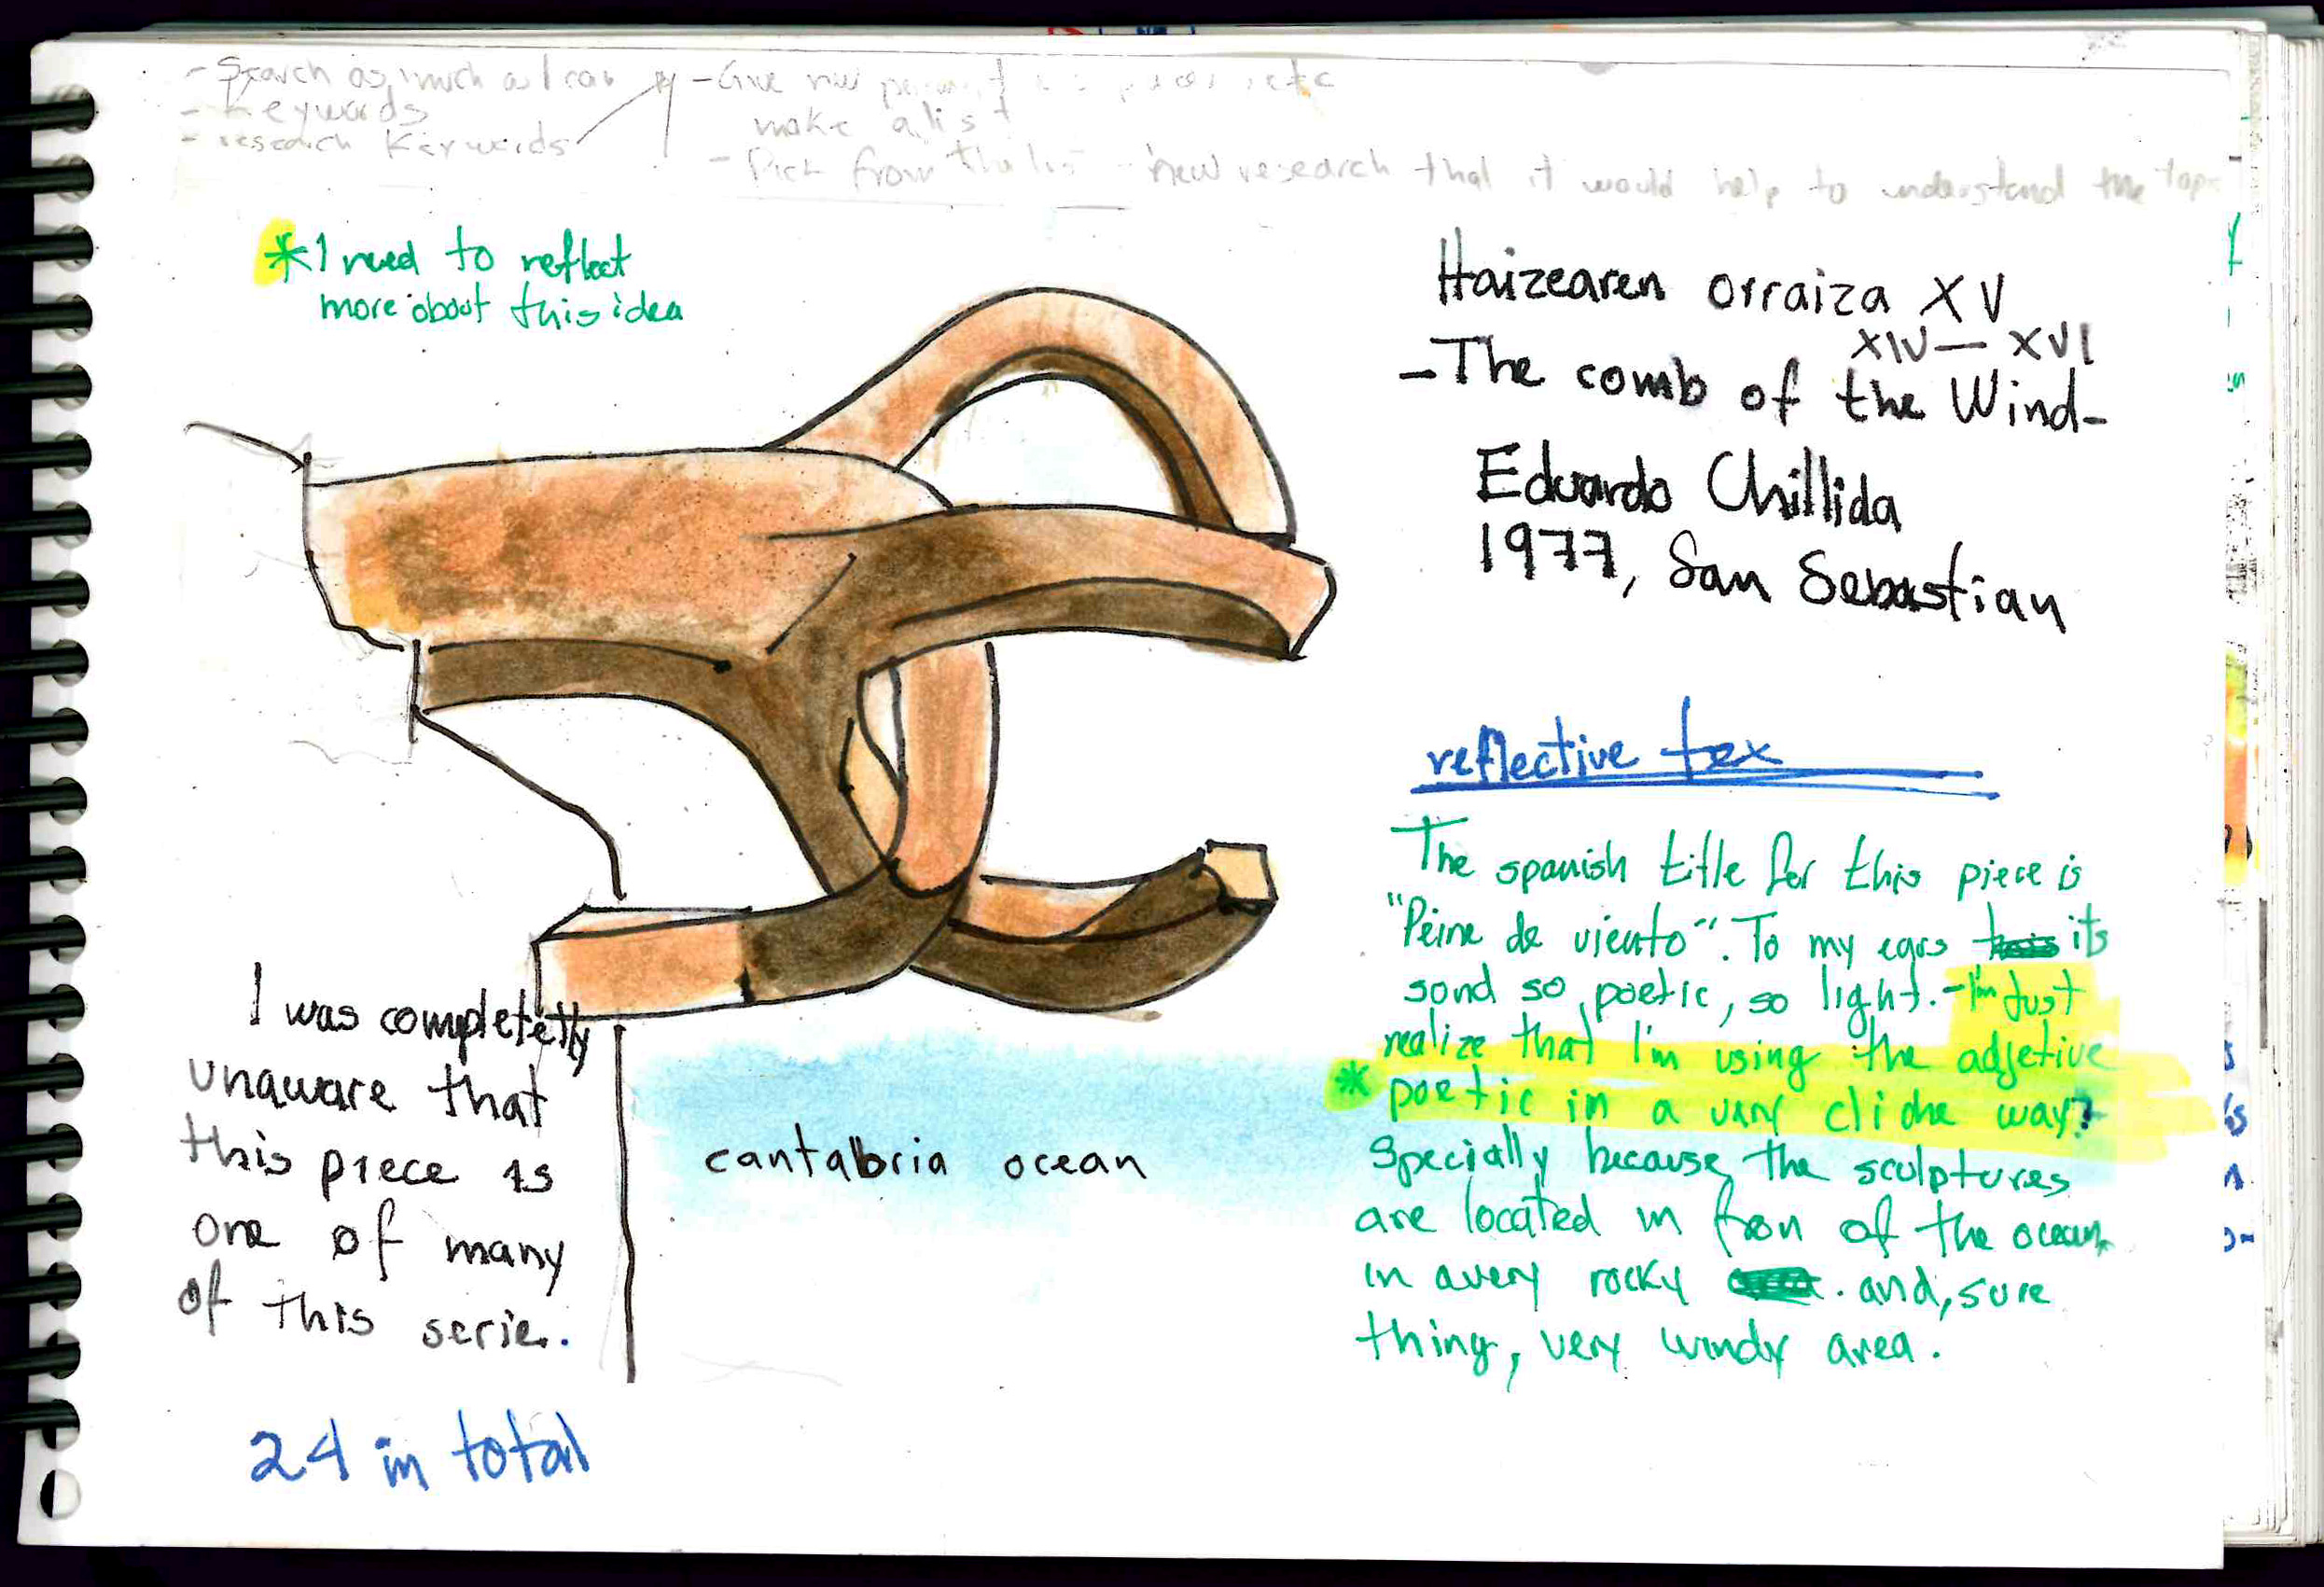 - Search as much as I can
- Keywords
- research Keywords
- Give new
make a list
- Pick from the list - new research that it would help to understand the topic
* I need to reflect
more about this idea
Haizearen orraiza XV
XIV — XVI
- The comb of the Wind -
Eduardo Chillida
1977, San Sebastian
reflective tex
The spanish title for this piece is
"Peine de viento". To my ears its
sond so poetic, so light. - I'm Just
realize that I'm using the adjetive
* poetic in a very cliche way?
Specially because the sculptures
are located in fron of the ocean
in a very rocky . and, sure
thing, very windy area.
I was completelly
unaware that
this piece is
one of many
of this serie.
24 in total
cantabria ocean